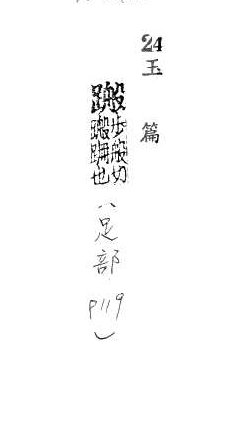 24
玉篇
𨃟
步般切
𨃟跚也
（足部 P119）